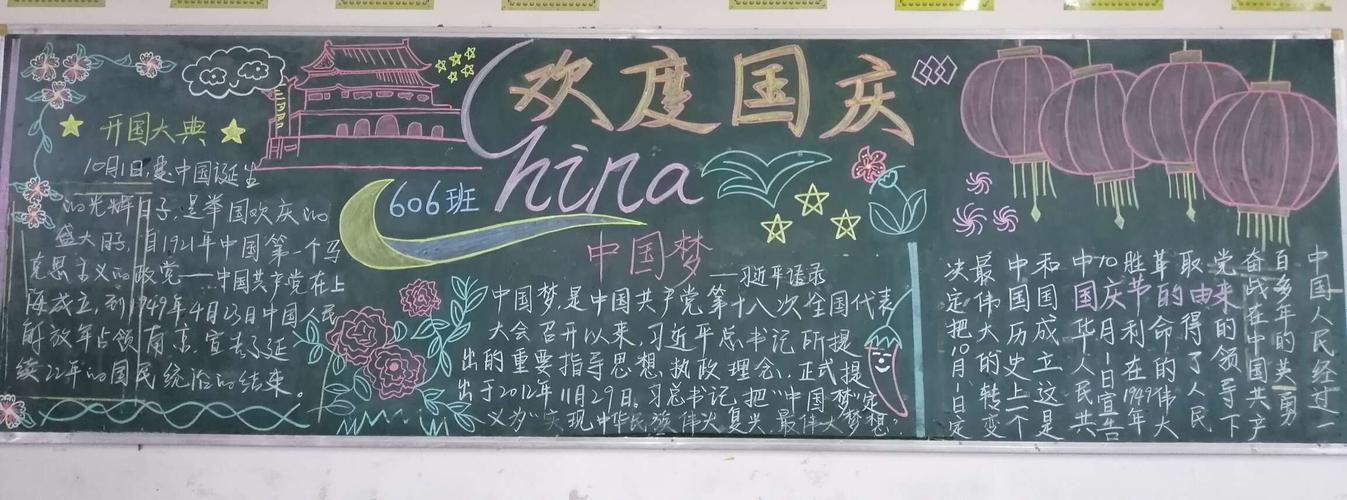 开国大典
10月1日,是中国诞生
的光辉日子,是举国欢庆的
盛大日子,自1921年中国第一个马
克思主义的政党——中国共产党在上
海成立,到1949年4月23日中国人民
解放军占领南京,宣告了延
续22年的国民统治的结束。
欢度国庆
China
606班
中国梦
——习近平语录
中国梦,是中国共产党第十八次全国代表
大会召开以来,习近平总书记所提
出的重要指导思想、执政理念,正式提
出于2012年11月29日。习总书记把“中国梦”定
义为“实现中华民族伟大复兴,最伟大梦想”
国庆节的由来
中国人民经过一
百多年的英勇
奋战在中国共产
党的领导下
取得了人民
革命的伟大
胜利在1949年
10月1日宣告
中华人民共
和国成立这是
中国历史上一个
最伟大的转变
决定把10月1日定